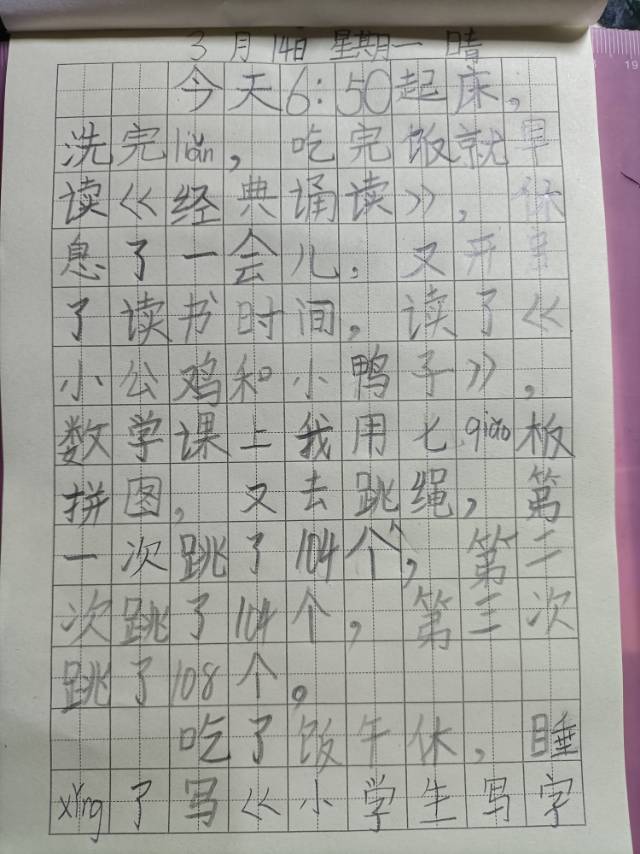 3月14日 星期一 晴
今天6:50起床,
洗完liǎn,吃完饭就早
读《经典诵读》,休
息了一会儿,又开始
了读书时间,读了《
小公鸡和小鸭子》,
数学课上我用七qiǎo板
拼图,又去跳绳,第
一次跳了104个,第二
次跳了104个,第三次
跳了108个。
吃了饭午休,睡
xǐng了写《小学生写字